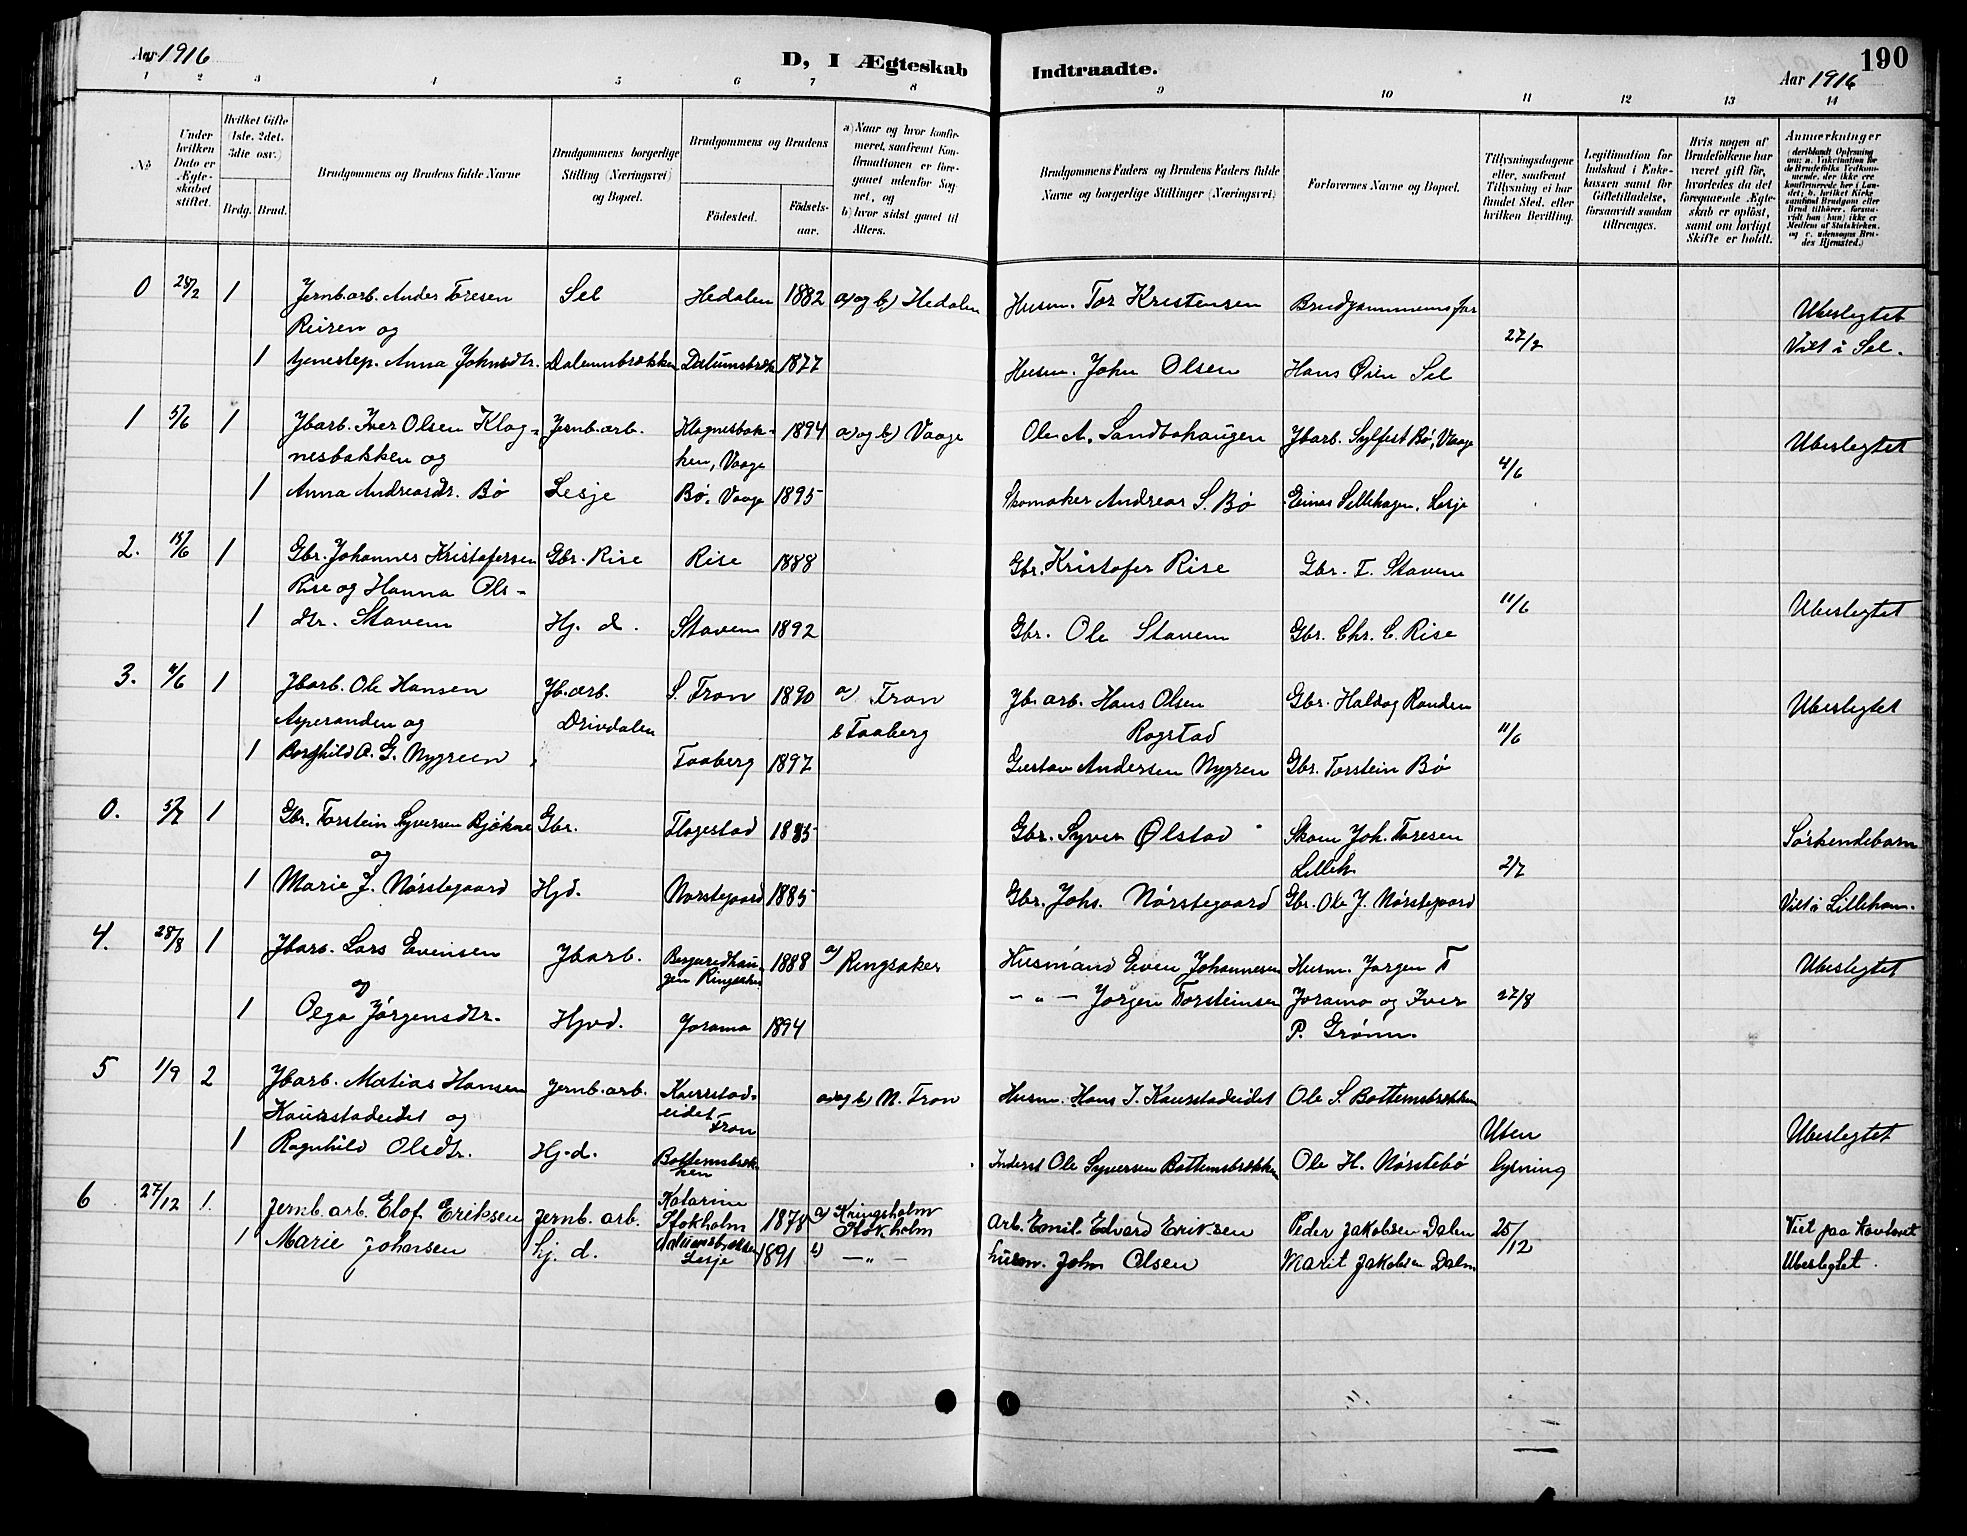 Aar 1916
D, I Ægteskab
Indtraadte.
190
Aar 1916
1 2 3 4 5 6 7 8 9 10 11 12 13 14
No
Under hvilken Dato er Ægteskabet stiftet.
Hvilket Gifte (1ste, 2det, 3die osv.)
Brdg. Brud.
Brudgommens og Brudens fulde Navne
Brudgommens borgerlige Stilling (Næringsvei) og Bopæl.
Brudgommens og Brudens
Fødested.
Fødsels-aar.
a) Naar og hvor konfirmeret, saafremt Konfirmationen er foregaaet udenfor Sognet, og
b) hvor sidst gaaet til Alters.
Brudgommens Faders og Brudens Faders fulde Navne og borgerlige Stillinger (Næringsvei)
Forlovernes Navne og Bopæl.
Tillysningsdagene eller, saafremt Tillysning ei har fundet Sted, efter hvilken Bevilling.
Legitimation for Indskud i Enkekassen samt for Giftetilladelse, forsaavidt saadan tiltrænges.
Hvis nogen af Brudefolkene har været gift før, hvorledes da det foregaaende Ægteskab er opløst, samt om lovligt Skifte er holdt.
Anmærkninger (deriblandt Oplysning om: a. Vakcination for de Brudefolks Vedkommende, der ikke ere konfirmerede her i Landet; b. hvilket Kirkesamfund Brudgom eller Brud tilhører, forsaavidt han (hun) ikke er Medlem af Statskirken, og c. udensogns Brudes Hjemsted.)
0 28/2 1 Jernb.arb. Anders Toresen Sel Hedalen 1882 a) og b) Hedalen Husm. Tor Kristensen Brudgommens far Ubeslegtet
Reiren og 27/2 Viet i Sel.
1 tjenestep. Anna Johnsdtr. Dalumsbrækken Dalumsbræk 1877 Husm. John Olsen Hans Øien Sel
1 5/6 1 Jbarb. Iver Olsen Klog- Jernb.arb. Klognesbak- 1894 a) og b) Vaage Ole A. Sandbohaugen Jbarb. Sylfest Bø, Vaage Ubeslegtet
nesbakken og ken, Vaage 4/6
1 Anna Andreasdtr. Bø Lesje Bø, Vaage 1895 Skomaker Andreas S. Bø Einar Sellehagen, Lesje
2. 15/6 1 Gbr. Johannes Kristofersen Gbr. Rise Rise 1888 Gbr. Kristofer Rise Gbr. T. Stavem
Rise og Hanna Ols- 11/6 Ubeslegtet
1 dtr. Stavem Hj. d. Stavem 1892 Gbr. Ole Stavem Gbr. Chr. C. Rise
3. 11/6 1 Jbarb. Ole Hansen Jb.arb. S. Fron 1890 a) Fron Jb. arb. Hans Olsen Gbr. Haldog Randen Ubeslegtet
Asperanden og Drivdalen b Faaberg Rogstad 11/6
1 Borghild A. G. Nygreen Faaberg 1897 Gustav Andersen Nygren Gbr. Torstein Bø
0. 5/7 1 Gbr. Torstein Syversen Bjøkne Gbr. Flagestad 1885 Gbr. Syver Ølstad Skom Joh. Toresen Sørkendebarn
og Lilleh. 2/7
1 Marie J. Nørstegaard Hjd. Nørstegaard 1885 Gbr. Johs. Nørstegaard Gbr. Ole J. Nørstegaard Viet i Lilleham.
4. 28/8 1 Jbarb. Lars Evensen Jbarb. Bergaredhau- 1888 a) Ringsaker Husmand Even Johannesen Husm. Jørgen T Ubeslegtet
og gen Ringsaker — " — Jørgen Torsteinsen Joramo og Iver 27/8
1 Olga Jørgensdtr. Hjvd. Joramo 1894 P. Grønn.
5 1/9 2 Jbarb. Matias Hansen Jernb.arb. Kaurstad- a) og b) N. Fron Husm. Hans J. Kaurstadeidet Ole S. Bottemsbrækken
Kaurstadeidet og eidet Fron Uten Ubeslegtet
1 Ragnhild Olsdtr. Hj.d. Bottemsbrækken Inderst Ole Syversen Bottemsbrækken Ole H. Nørstebø lysning
6 27/12 1. Jernb. arb. Elof Eriksen Jernb. arb. Katarina Stokholm 1878 a) Kringsholm Stokholm Arb. Emil Edvard Eriksen Peder Jakobsen Dalen 25/12 Viet paa Kontoret
1 Marie Johnsen hj. d. Dalumsbrækken Lesje 1891 b) — " — husm. John Olsen Marit Jakobsen Dalen Ubeslegtet.